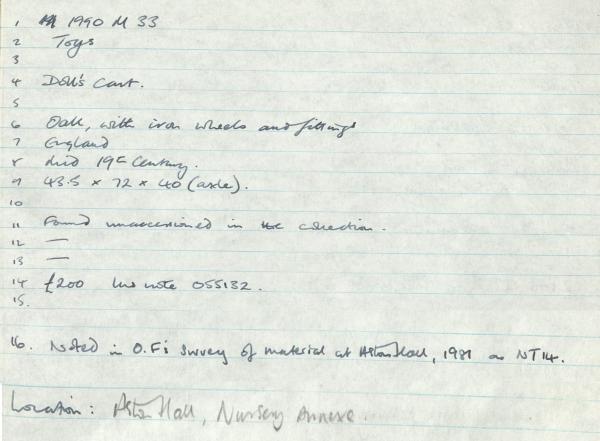 1 1990 M 33
2 Toys
3
4 Doll's Cart.
5
6 Oak, with iron wheels and fittings
7 England
8 Mid 19th Century.
9 43.5 x 72 x 40 (axle).
10
11 Found unaccessioned in the collection.
12 —
13 —
14 £200 note 055132.
15.
16. Noted in O.F's survey of material at Aston Hall, 1981 as NT14.
Location: Aston Hall, Nursery Annexe.